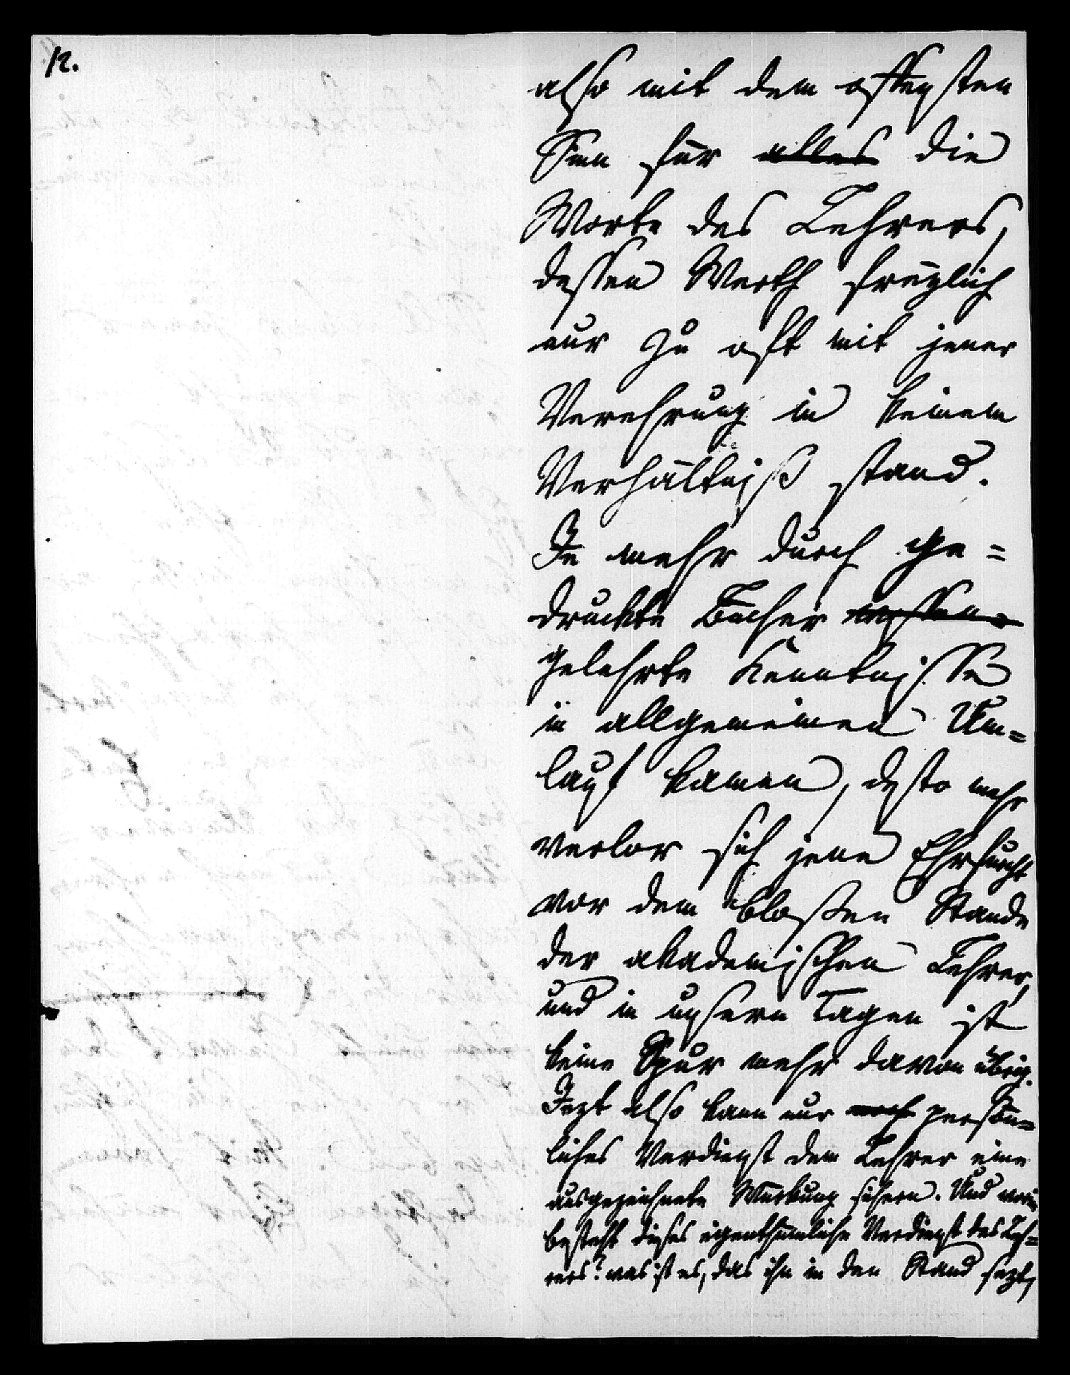 12.
also mit dem offensten
Sinn für alles die
Worte des Lehrers,
dessen Werth freylich
nur zu oft mit jener
Verehrung in keinem
Verhältniß stand.
Je mehr durch ge=
druckte Bücher
gelehrte Kenntnisse
in allgemeinen Um=
lauf kamen, desto mehr
verlor sich jene Ehrfurcht
vor dem bloßen Stande
der akademischen Lehrer,
und in unsern Tagen ist
keine Spur mehr davon übrig.
Jezt also kann nur noch persön=
liches Verdienst dem Lehrer eine
ausgezeichnete Würkung sichern. Und worin
besteht dieses eigenthümliche Verdienst des Leh=
rers? was ist es, das ihn in den Stand sezt,